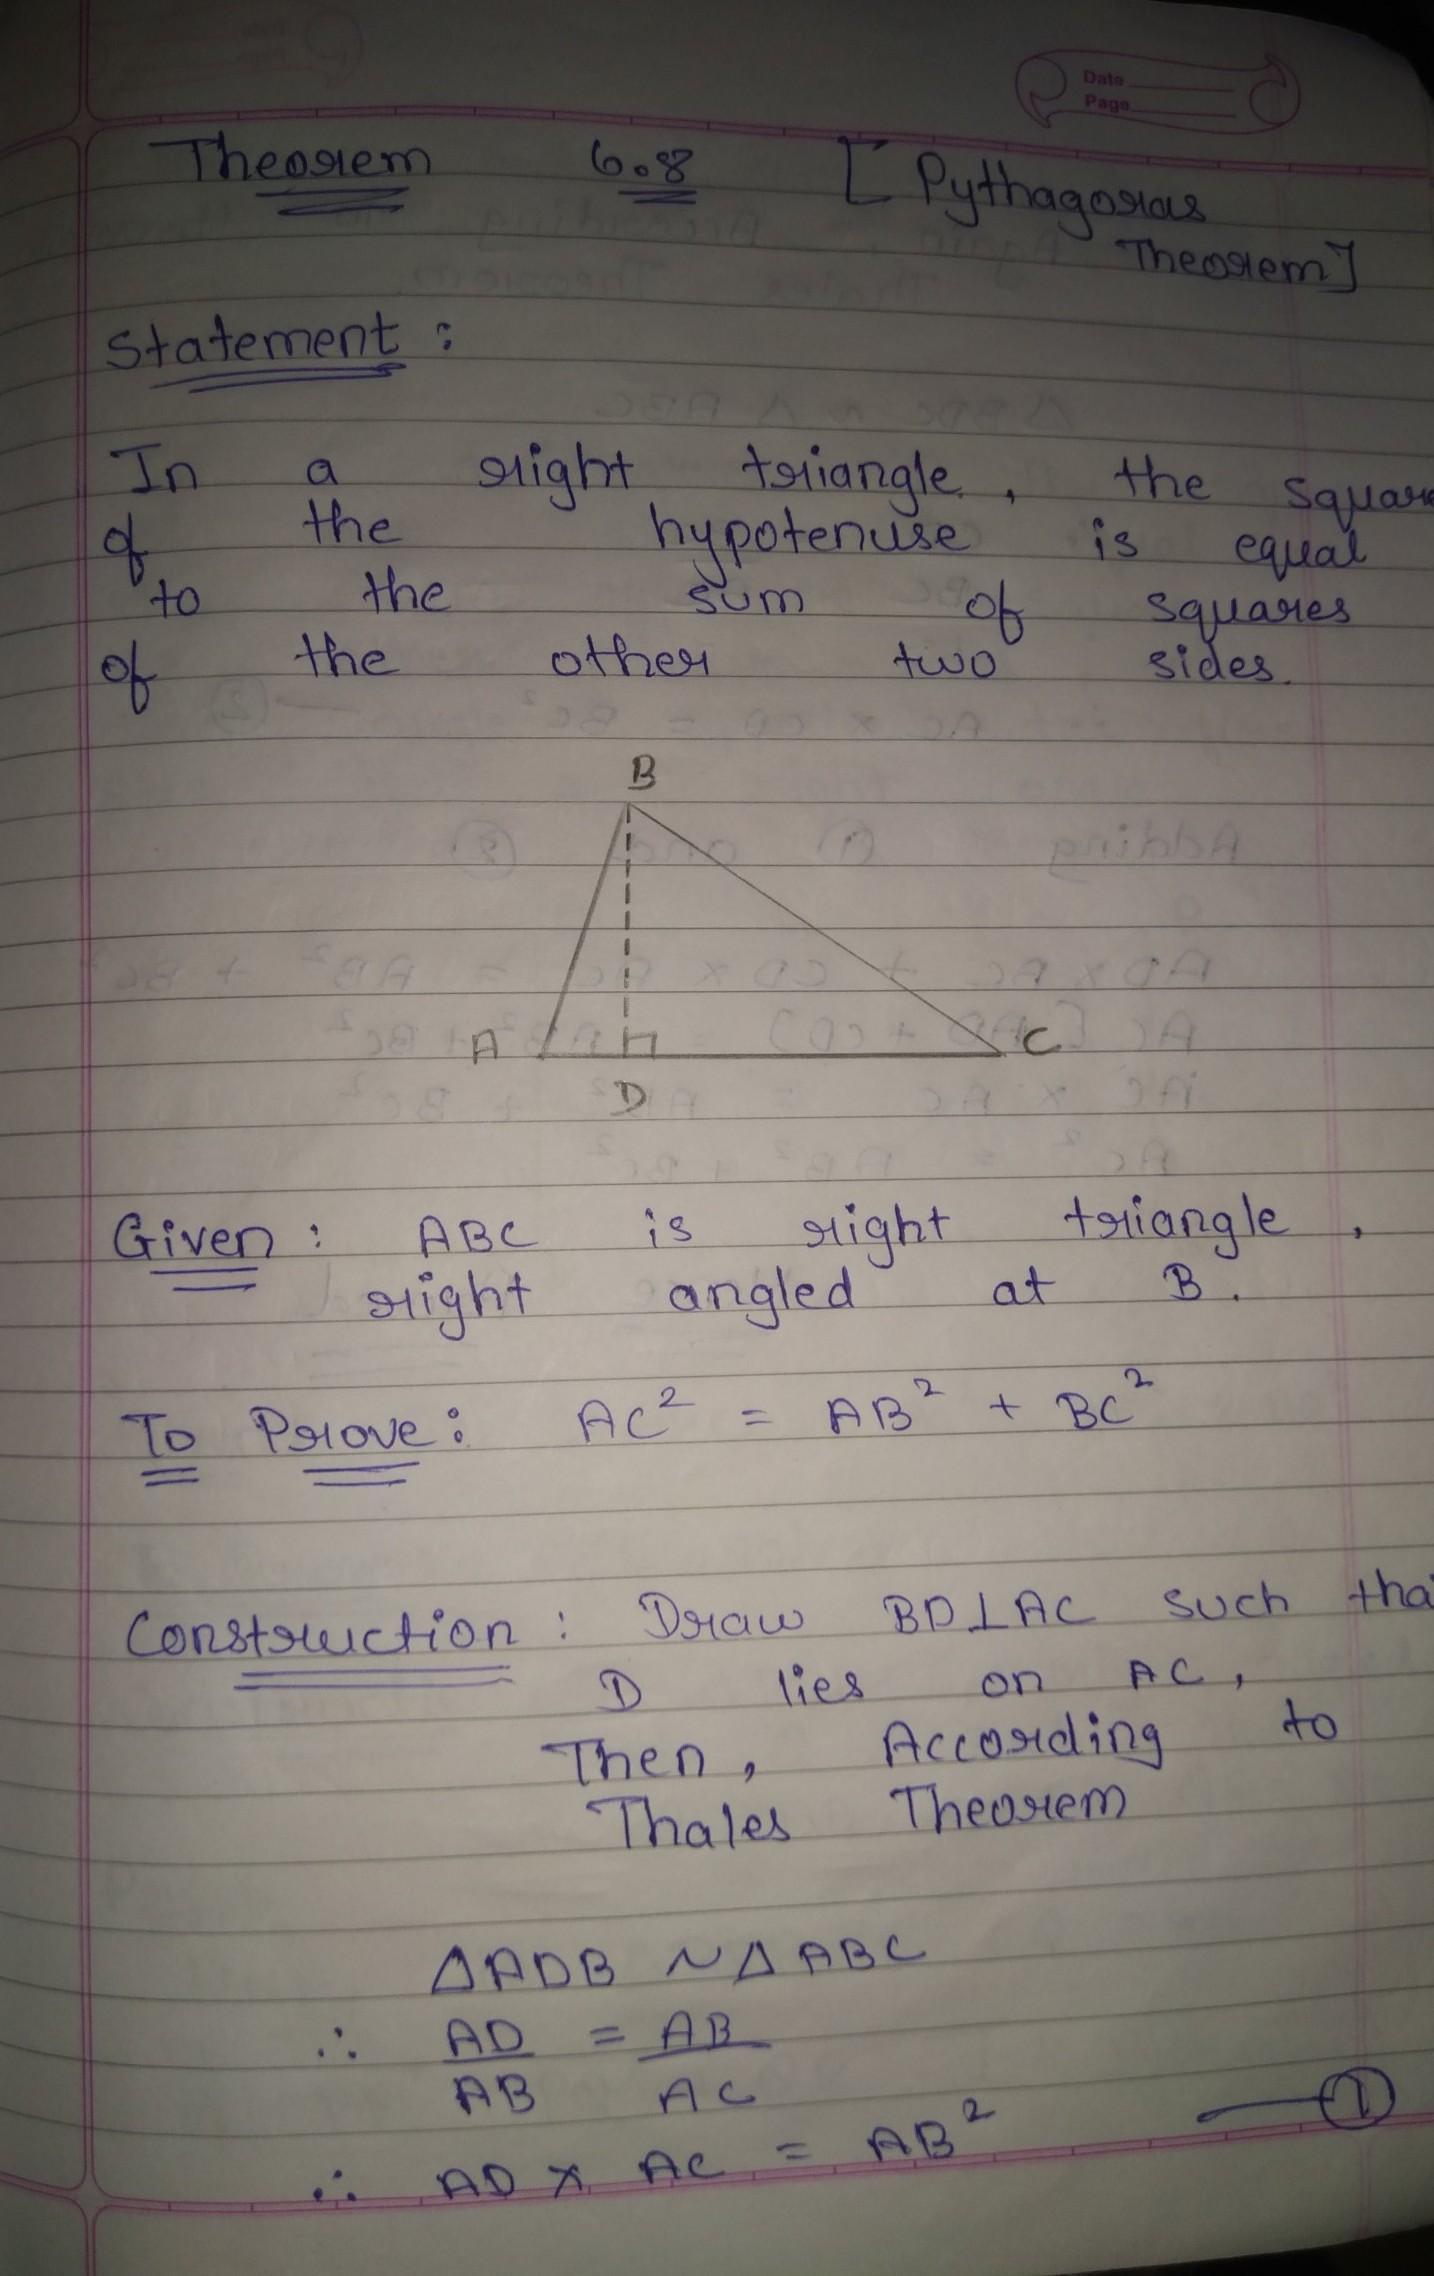 Date
Page
Theorem 6.8 [Pythagoras
Theorem]
Statement :
In a right triangle, the square
of the hypotenuse is equal
to the sum of squares
of the other two sides.
B
A C
D
Given : ABC is right triangle,
right angled at B.
To Prove : AC² = AB² + BC²
Construction : Draw BD⊥AC such tha
D lies on AC,
Then, According to
Thales Theorem
△ADB ~ △ABC
∴ AD/AB = AB/AC
∴ AD × AC = AB² — ①